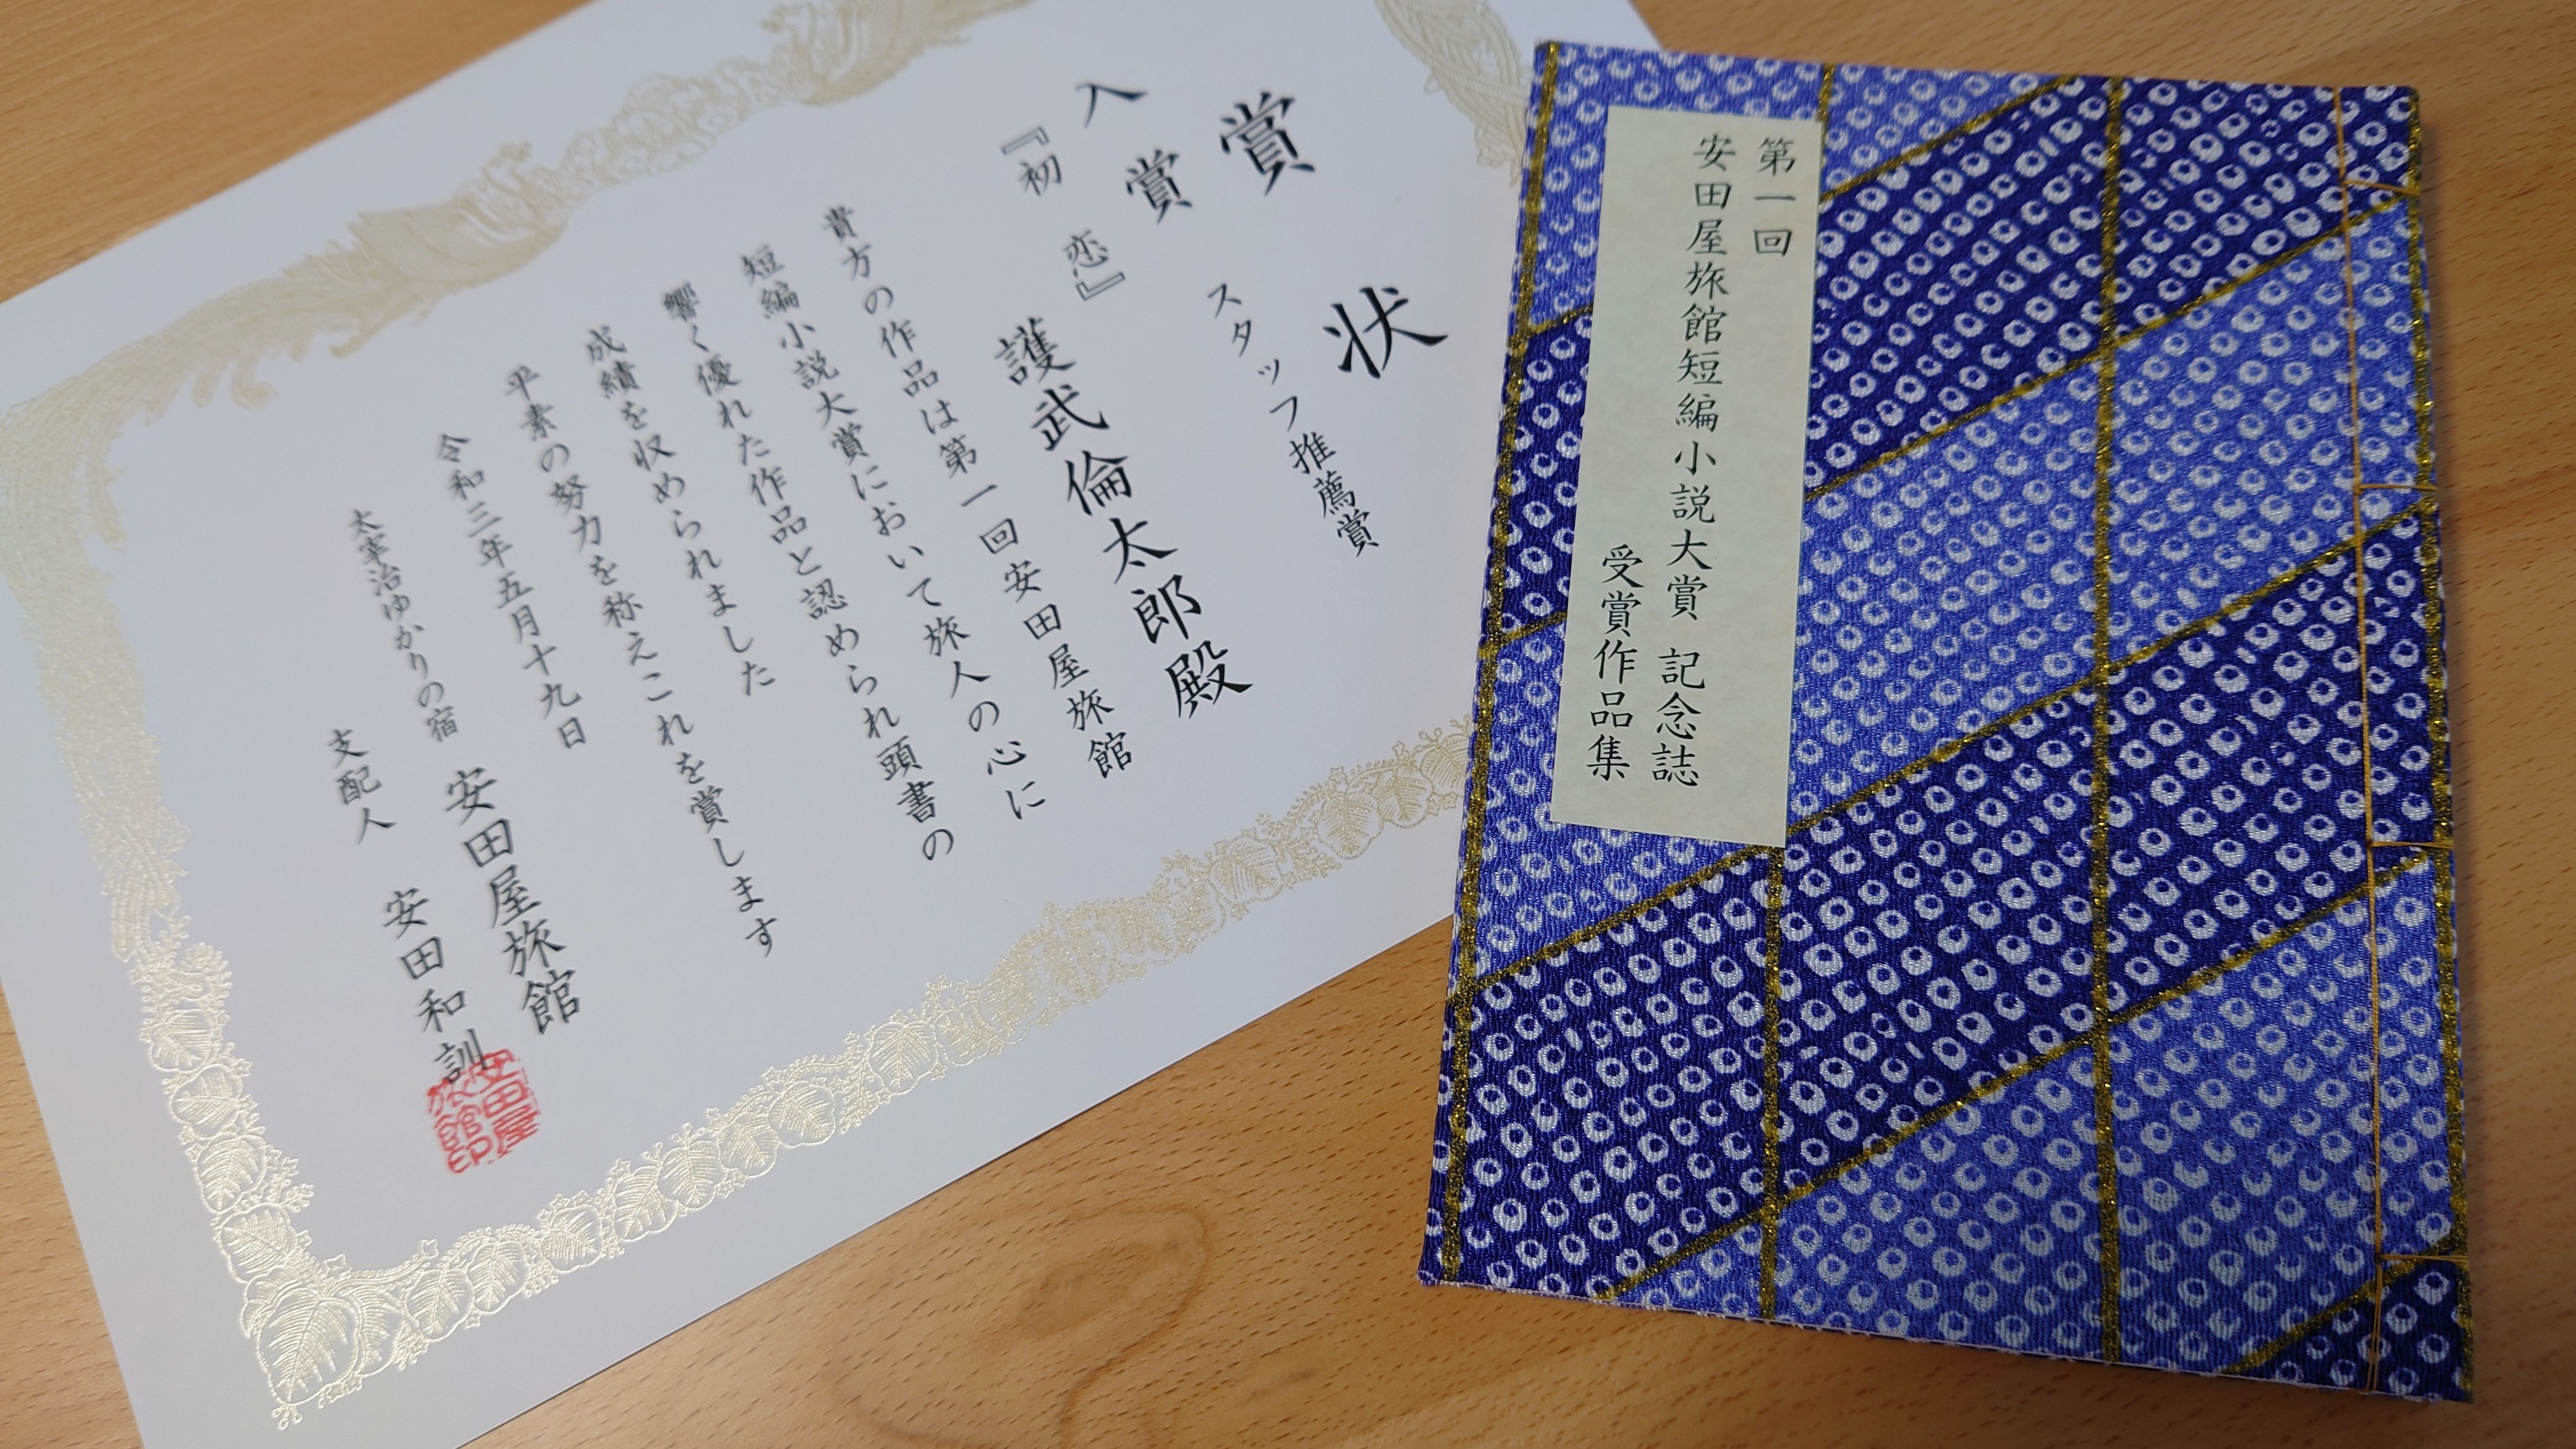 賞状
入賞 スタッフ推薦賞
『初恋』
護武倫太郎殿
貴方の作品は第一回安田屋旅館
短編小説大賞において旅人の心に
響く優れた作品と認められ頭書の
成績を収められました
平素の努力を称えこれを賞します
令和三年五月十九日
太宰治ゆかりの宿 安田屋旅館
支配人 安田和訓
安田屋
旅館印
第一回
安田屋旅館短編小説大賞 記念誌
受賞作品集